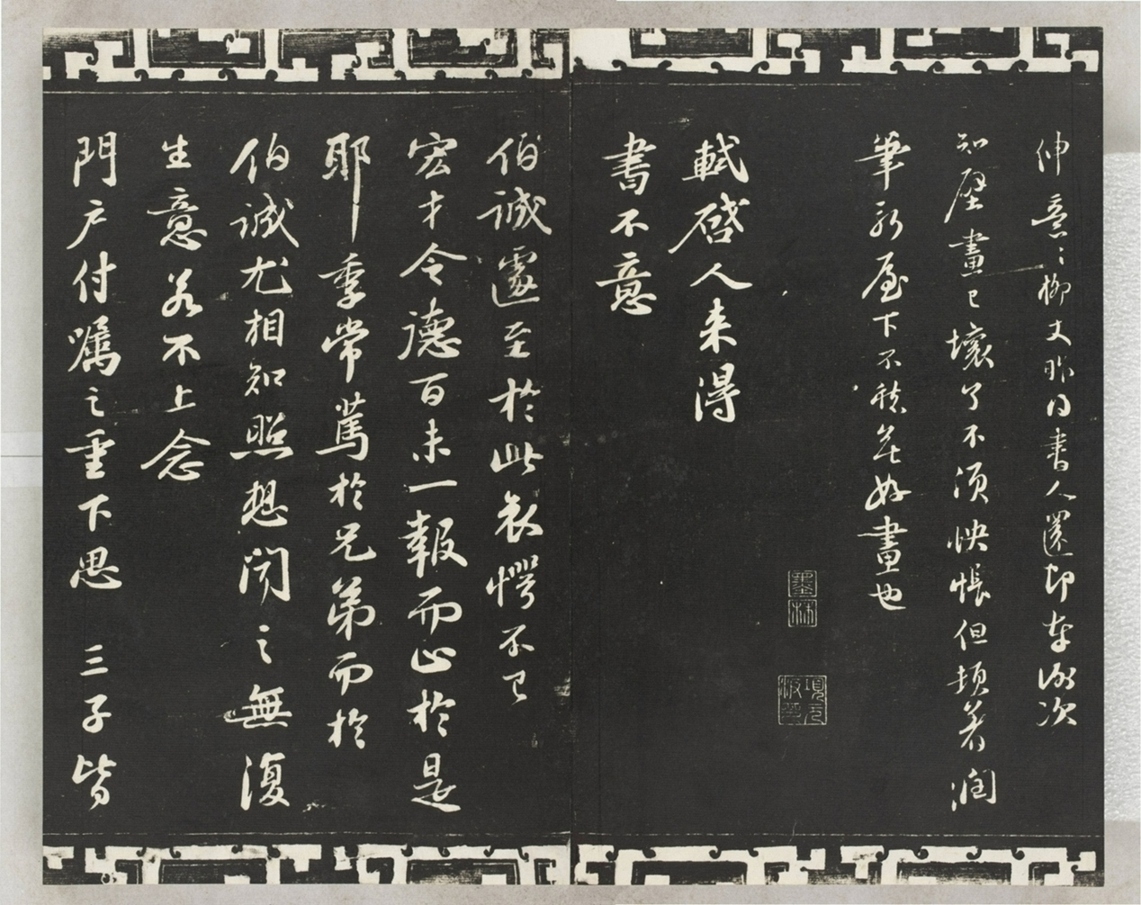 仲意意柳丈昨得書人還即奉謝次
知壁畫已壞了不須怏悵但頓著潤
筆新屋下不愁無好畫也
軾啓人來得
書不意
伯誠遽至於此哀愕不已
宏才令德百未一報而止於是
耶季常篤於兄弟而於
伯誠尤相知照想聞之無復
生意若不上念
門户付囑之重下思三子皆
墨林
項元汴印